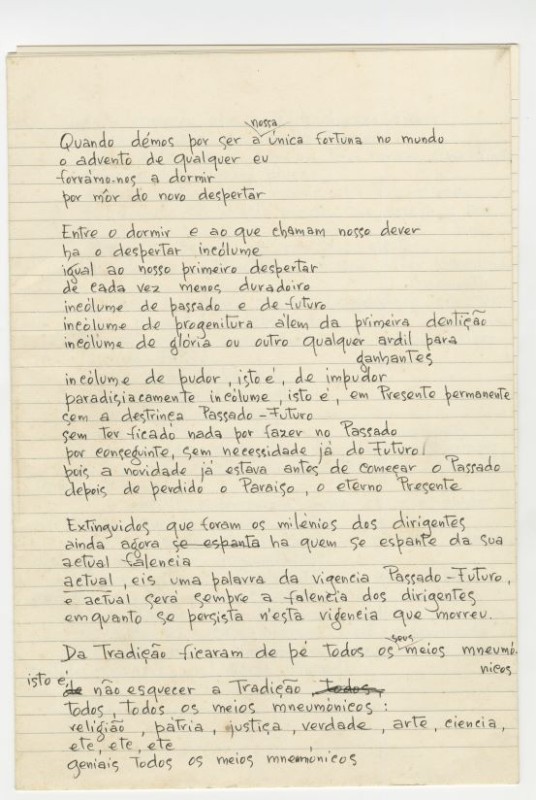 Quando démos por ser a nossa única fortuna no mundo
o advento de qualquer eu
forràmo-nos a dormir
por mór do novo despertar
Entre o dormir e ao que chamam nosso dever
ha o despertar incólume
igual ao nosso primeiro despertar
de cada vez menos duradoiro
incólume de passado e de futuro
incólume de progenitura àlem da primeira dentição
incólume de glória ou outro qualquer ardil para
ganhantes
incólume de pudor, isto é, de impudor
paradisiacamente incólume, isto é, em Presente permanente
sem a destrinça Passado-Futuro
sem ter ficado nada por fazer no Passado
por conseguinte, sem necessidade já do Futuro
pois a novidade já estava antes de começar o Passado
depois de perdido o Paraiso, o eterno Presente
Extinguidos que foram os milénios dos dirigentes
ainda agora se espanta ha quem se espante da sua
actual falencia
actual, eis uma palavra da vigencia Passado-Futuro,
e actual será sempre a falencia dos dirigentes
emquanto se persista n'esta vigencia que morreu.
Da Tradição ficaram de pé todos os seus meios mneumó-
nicos
isto é, de não esquecer a Tradição todos,
todos, todos os meios mneumónicos:
religião, pátria, justiça, verdade, arte, ciencia,
etc, etc, etc
geniais todos os meios mnemónicos